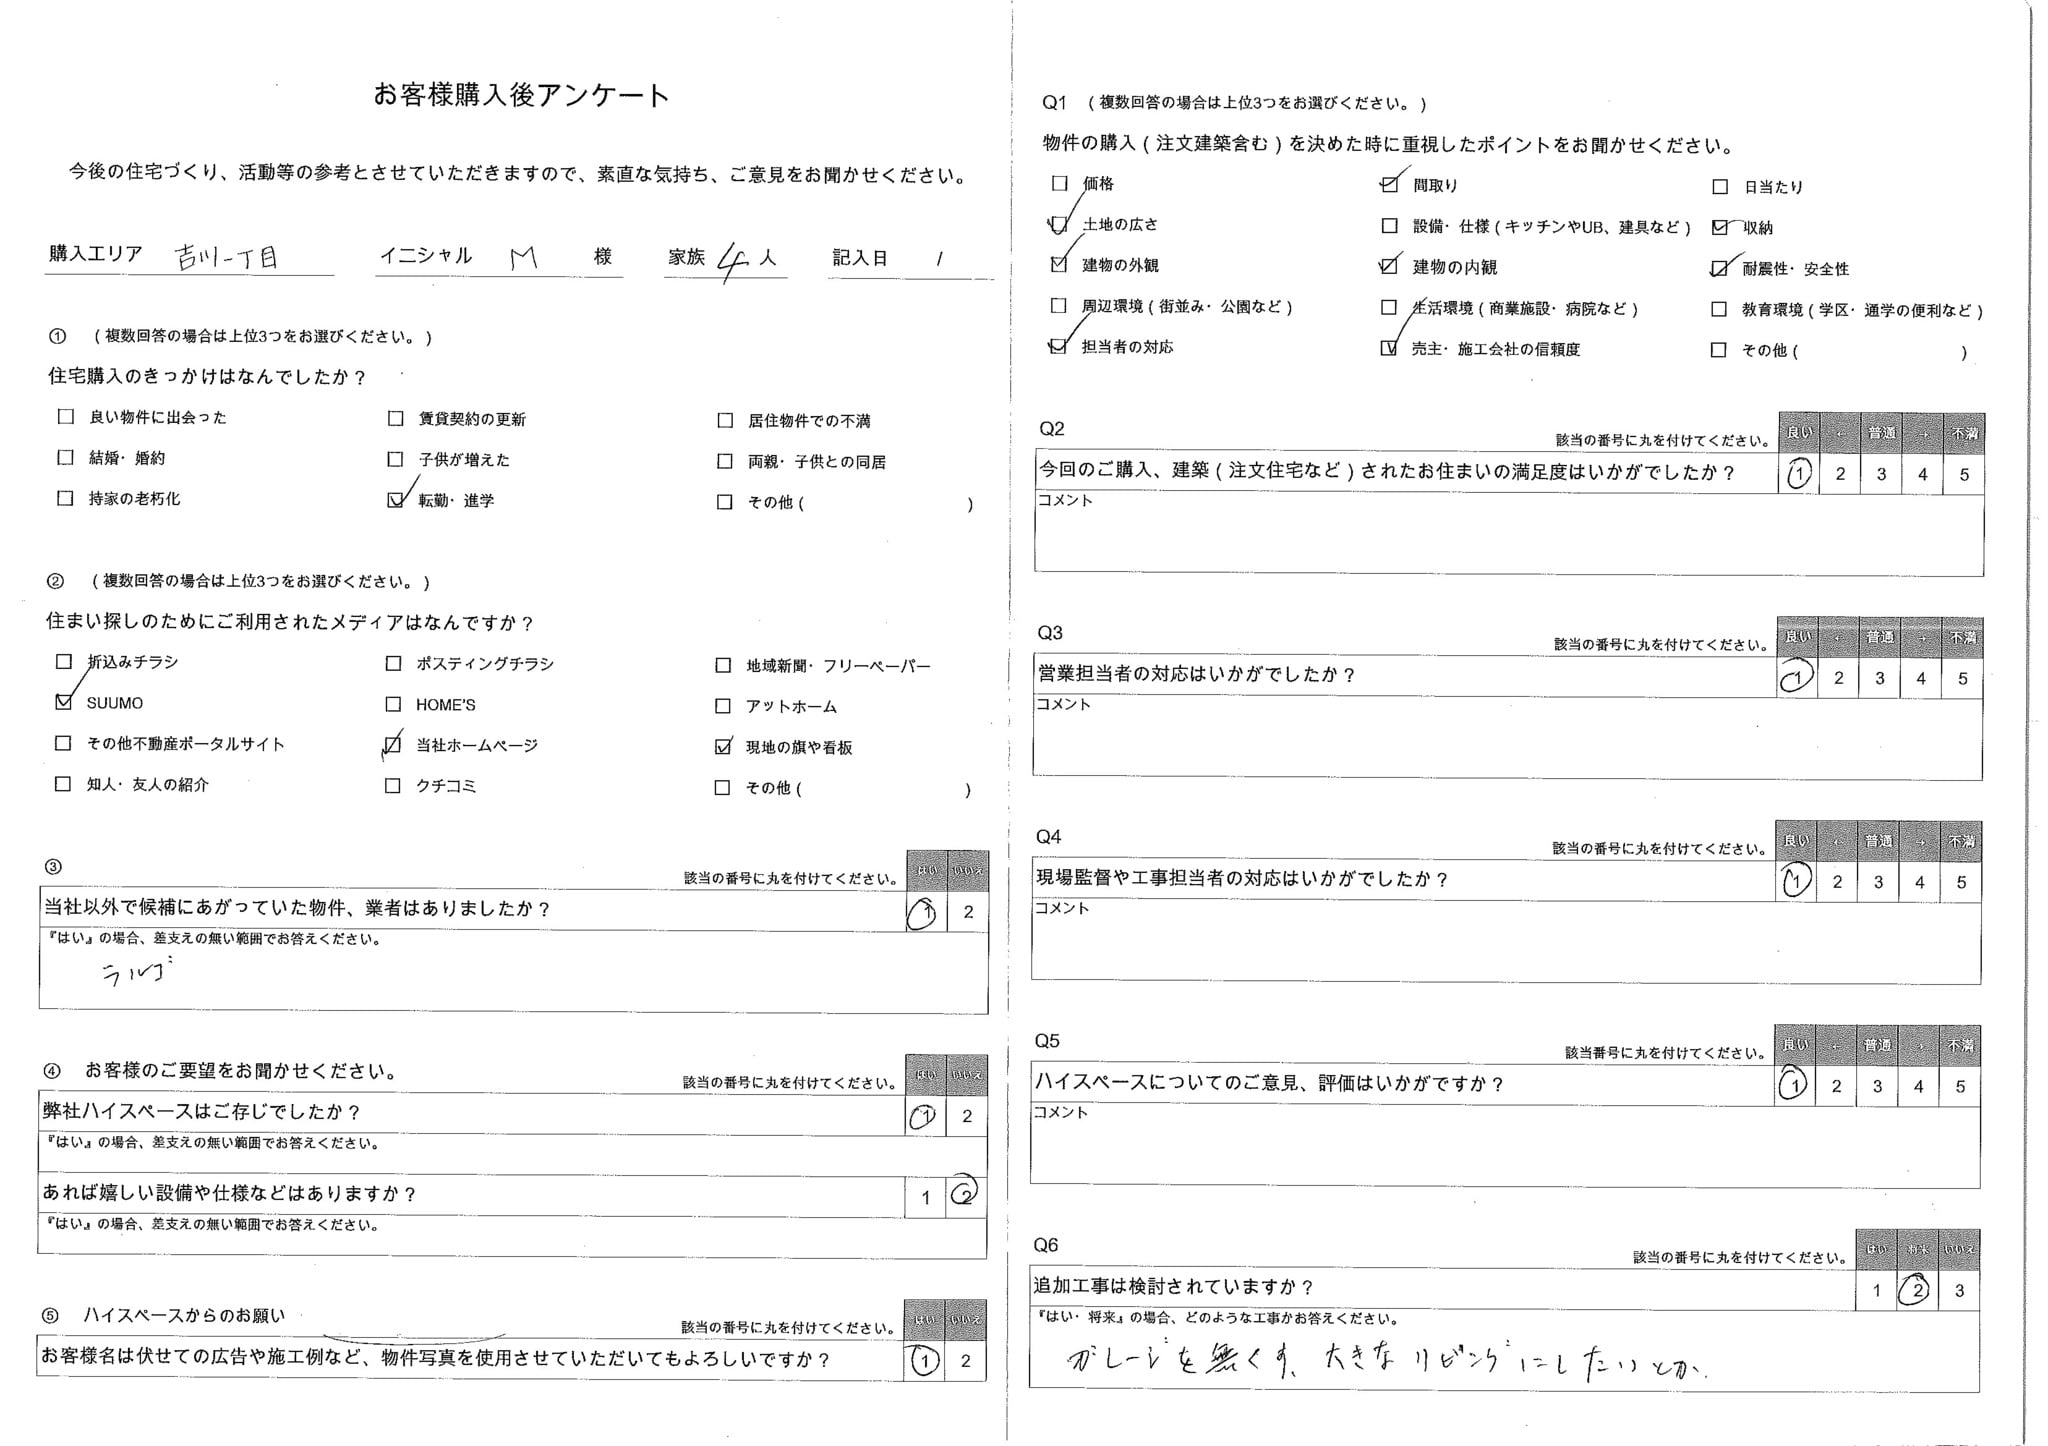 お客様購入後アンケート
今後の住宅づくり、活動等の参考とさせていただきますので、素直な気持ち、ご意見をお聞かせください。
購入エリア 吉川一丁目 イニシャル M 様 家族 4 人 記入日 /
① (複数回答の場合は上位3つをお選びください。)
住宅購入のきっかけはなんでしたか？
□ 良い物件に出会った □ 賃貸契約の更新 □ 居住物件での不満
□ 結婚・婚約 □ 子供が増えた □ 両親・子供との同居
□ 持家の老朽化 ☑ 転勤・進学 □ その他 ( )
② (複数回答の場合は上位3つをお選びください。)
住まい探しのためにご利用されたメディアはなんですか？
□ 折込みチラシ □ ポスティングチラシ □ 地域新聞・フリーペーパー
☑ SUUMO □ HOME'S □ アットホーム
□ その他不動産ポータルサイト ☑ 当社ホームページ ☑ 現地の旗や看板
□ 知人・友人の紹介 □ クチコミ □ その他 ( )
③ 該当の番号に丸を付けてください。 はい いいえ
当社以外で候補にあがっていた物件、業者はありましたか？ 1 2
『はい』の場合、差支えの無い範囲でお答えください。
ラルゴ
④ お客様のご要望をお聞かせください。 該当の番号に丸を付けてください。 はい いいえ
弊社ハイスペースはご存じでしたか？ 1 2
『はい』の場合、差支えの無い範囲でお答えください。
あれば嬉しい設備や仕様などはありますか？ 1 2
『はい』の場合、差支えの無い範囲でお答えください。
⑤ ハイスペースからのお願い 該当の番号に丸を付けてください。 はい いいえ
お客様名は伏せての広告や施工例など、物件写真を使用させていただいてもよろしいですか？ 1 2
Q1 (複数回答の場合は上位3つをお選びください。)
物件の購入 (注文建築含む) を決めた時に重視したポイントをお聞かせください。
□ 価格 ☑ 間取り □ 日当たり
☑ 土地の広さ □ 設備・仕様 (キッチンやUB、建具など) ☑ 収納
☑ 建物の外観 ☑ 建物の内観 ☑ 耐震性・安全性
□ 周辺環境 (街並み・公園など) □ 生活環境 (商業施設・病院など) □ 教育環境 (学区・通学の便利など)
☑ 担当者の対応 ☑ 売主・施工会社の信頼度 □ その他 ( )
Q2 該当の番号に丸を付けてください。 良い ← 普通 → 不満
今回のご購入、建築 (注文住宅など) されたお住まいの満足度はいかがでしたか？ 1 2 3 4 5
コメント
Q3 該当の番号に丸を付けてください。 良い ← 普通 → 不満
営業担当者の対応はいかがでしたか？ 1 2 3 4 5
コメント
Q4 該当の番号に丸を付けてください。 良い ← 普通 → 不満
現場監督や工事担当者の対応はいかがでしたか？ 1 2 3 4 5
コメント
Q5 該当番号に丸を付けてください。 良い ← 普通 → 不満
ハイスペースについてのご意見、評価はいかがですか？ 1 2 3 4 5
コメント
Q6 該当の番号に丸を付けてください。 はい 将来 いいえ
追加工事は検討されていますか？ 1 2 3
『はい・将来』の場合、どのような工事かお答えください。
ガレージを無くす、大きなリビングにしたいとか、